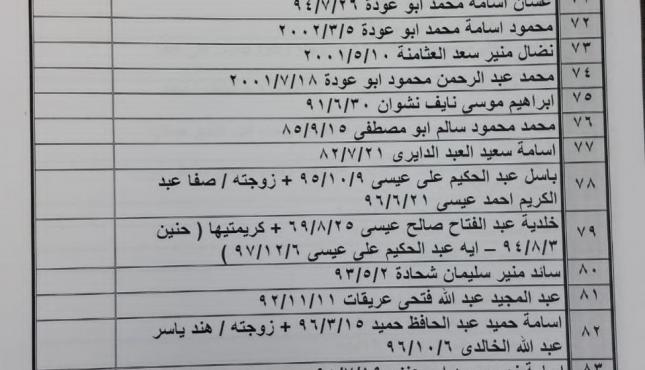 غسان اسامة محمد ابو عودة ٩٤/٧/٢٦
٧٢ محمود اسامة محمد ابو عودة ٢٠٠٢/٣/٥
٧٣ نضال منير سعد العثامنة ٢٠٠١/٥/١٠
٧٤ محمد عبد الرحمن محمود ابو عودة ٢٠٠١/٧/١٨
٧٥ ابراهيم موسى نايف نشوان ٩١/٦/٣٠
٧٦ محمد محمود سالم ابو مصطفى ٨٥/٩/١٥
٧٧ اسامة سعيد العبد الدايرى ٨٢/٧/٢١
٧٨ باسل عبد الحكيم على عيسى ٩٥/١٠/٩ + زوجته / صفا عبد
الكريم احمد عيسى ٩٦/٦/٢١
٧٩ خلدية عبد الفتاح صالح عيسى ٦٩/٨/٢٥ + كريمتيها ( حنين
٩٤/٨/٣ – ايه عبد الحكيم على عيسى ٩٧/١٢/٦ )
٨٠ سائد منير سليمان شحادة ٩٣/٥/٢
٨١ عبد المجيد عبد الله فتحى عريقات ٩٢/١١/١١
٨٢ اسامة حميد عبد الحافظ حميد ٩٦/٣/١٥ + زوجته / هند ياسر
عبد الله الخالدى ٩٦/١٠/٦
٨٣